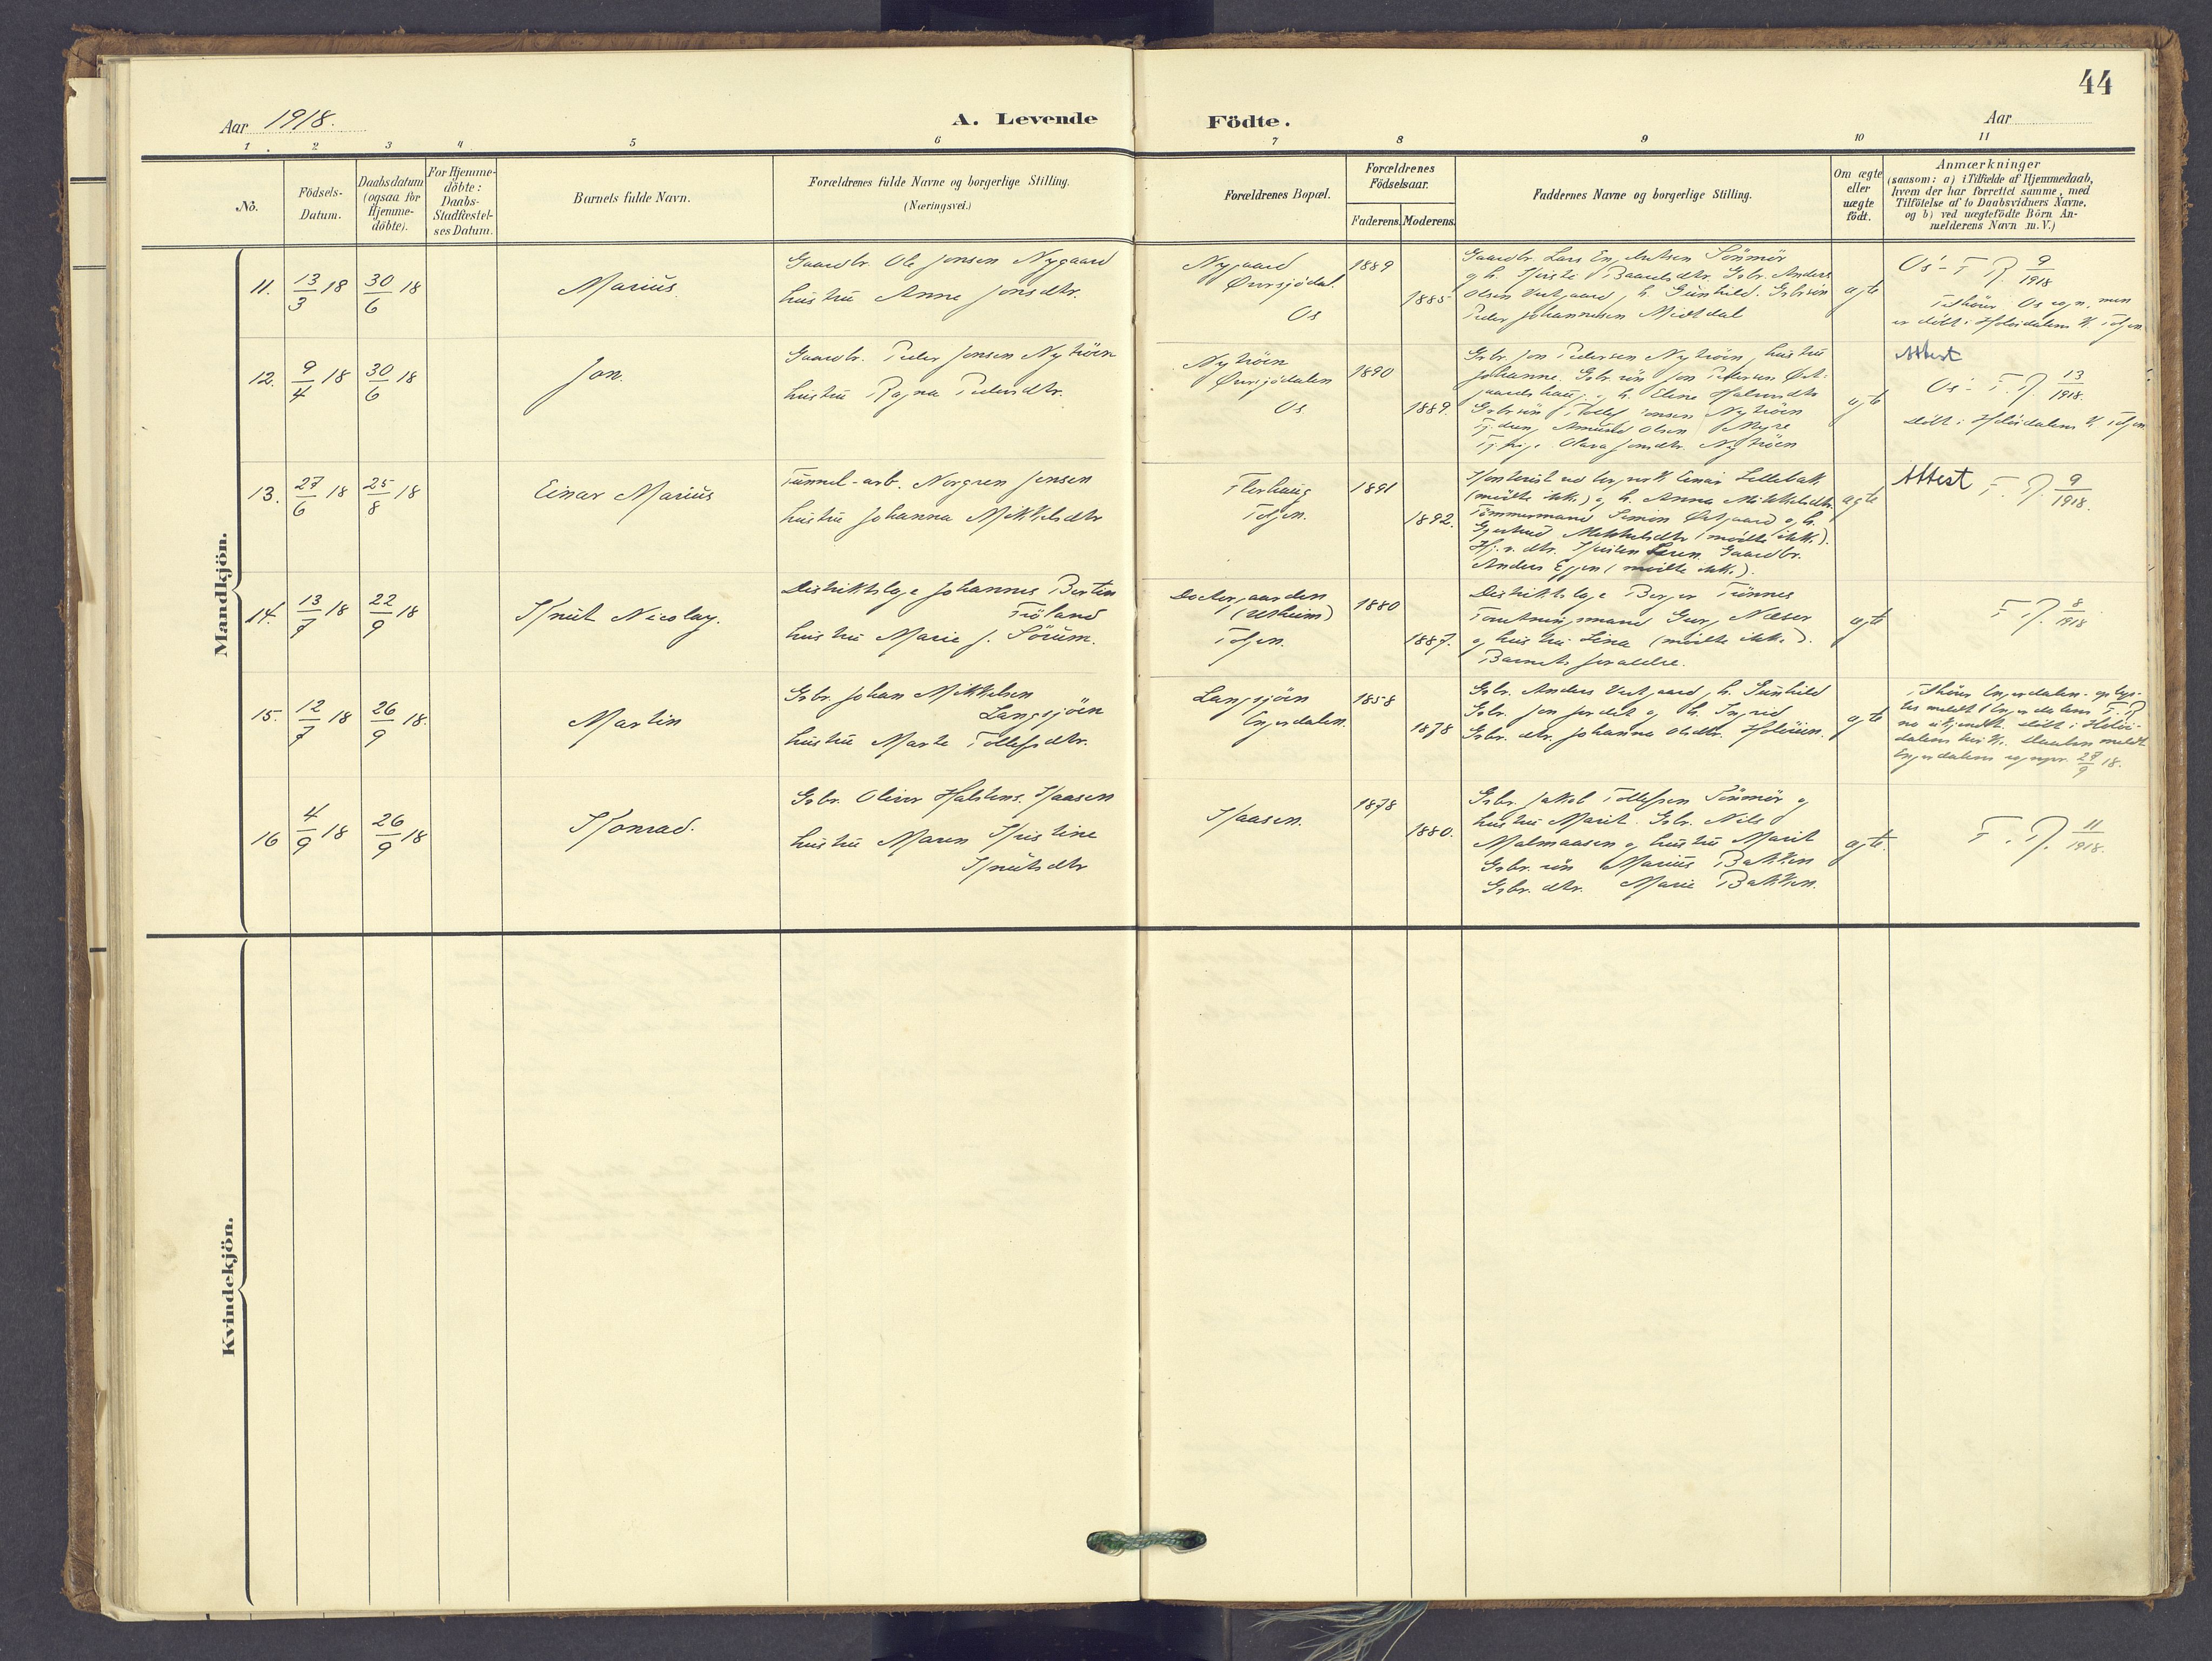 44
Aar 1918.
A. Levende Födte.
Aar
1 2 3 4 5 6 7 8 9 10 11
No.
Födsels-Datum.
Daabsdatum (ogsaa for Hjemme-döbte).
For Hjemme-döbte: Daabs-Stadfæstel-ses Datum.
Barnets fulde Navn.
Forældrenes fulde Navne og borgerlige Stilling.
(Næringsvei.)
Forældrenes Bopæl.
Forældrenes Födselsaar.
Faderens. Moderens.
Faddernes Navne og borgerlige Stilling.
Om ægte eller uægte födt.
Anmærkninger
(saasom: a) i Tilfælde af Hjemmedaab,
hvem der har forrettet samme, med
Tilföielse af to Daabsvidners Navne,
og b) ved uægtefödte Börn An-
melderens Navn m. V.)
Mandkjön.
11. 13/3 18 30/6 18
Marius
Gaardbr. Ole Jonsen Nygaard
hustru Anne Jonsdtr.
Nygaard
Øversjödal.
Os
1889
1885
Gaardbr. Lars Engebretsen Sömmör
og h. Kirsti Baardsdtr. Gbr. Anders
Olsen Vestgaard, h. Gunhild. Gbrsön
Peder Johannesen Midtdal
ægte
Os' F. R. 9/1918
Tilhörer Os sogn, men
er döbt i Holöidalens K. Tolgen
12. 9/4 18 30/6 18
Jon.
Gaardbr. Peder Jonsen Nytröen
hustru Ragna Pedersdtr.
Nytröen
Øversjödalen
Os
1890
1889.
Gbr. Jon Pedersen Nytröen, hustru
Johanne. Gbr. sön Jon Petersen Øst-
gaardshaug, og h. Eline
Gbrsön Tollef Jonsen Nytröen
Tj.dreng Amund Olsen Myre
Tj.pige Olava Jonsdtr. Nytröen
ægte
Attest
Os' F. R. 13/1918.
döbt i Holöidalens K. Tolgen
13. 27/6 18 25/8 18
Einar Marius
Tunnel-arb. Norgren Jensen
hustru Johanna Mikkelsdtr
Flerhaug
Tolgen.
1891
1892.
Kontorist ved Einar Lillebakk
(mödte ikke) og h. Anna Mikkelsdtr.
Tömmermand Simon Østgaard og h.
Gjertrud Mikkelsdtr (mödte ikke).
Hj. v. dtr. Kristen Gaardbr.
Anders Eggen (mödte ikke).
ægte
Attest F. R. 9/1918.
14. 13/7 18 22/9 18
Knut Nicolay.
Distriktslæge Johannes Bertin
Fröland
hustru Marie J. Sörum.
Doctorgaarden
(Utheim)
Tolgen.
1880
1887.
Distriktslæge Birger Tünnes
Forretningsmand Georg Nilsen
og hustru Lina (mödte ikke).
Barnets forældre.
ægte
F. R. 8/1918
15. 12/7 18 26/9 18.
Martin
Gbr. Johan Mikkelsen
Langsjöen
hustru Marte Tollefsdtr.
Langsjöen
Engerdalen.
1858
1878
Gbr. Anders Vestgaard, h. Gunhild
Gbr. Jon Jordet og h. Ingrid
Gbr. dtr. Johanna Olsdtr. Holöien.
ægte
Tilhörer Engerdalen. oplys-
tes meldt i Engerdalens F. R.
no ukjendt. döbt i Holöi-
dalens kirke. Daaben meldt
Engerdalens sognepr. 27/9 18.
16 4/9 18 26/9 18
Konrad.
Gbr. Oliver Halstens. Kaasen
hustru Maren Kristine
Knutsdtr
Kaasen.
1878
1880.
Gbr. Jakob Tollefsen Sömmör og
hustru Marit. Gbr. Nils
Malmaasen og hustru Marit
Gbr. sön Marius Bakken
Gbr. dtr. Marie Bakken.
ægte.
F. R. 11/1918.
Kvindekjön.